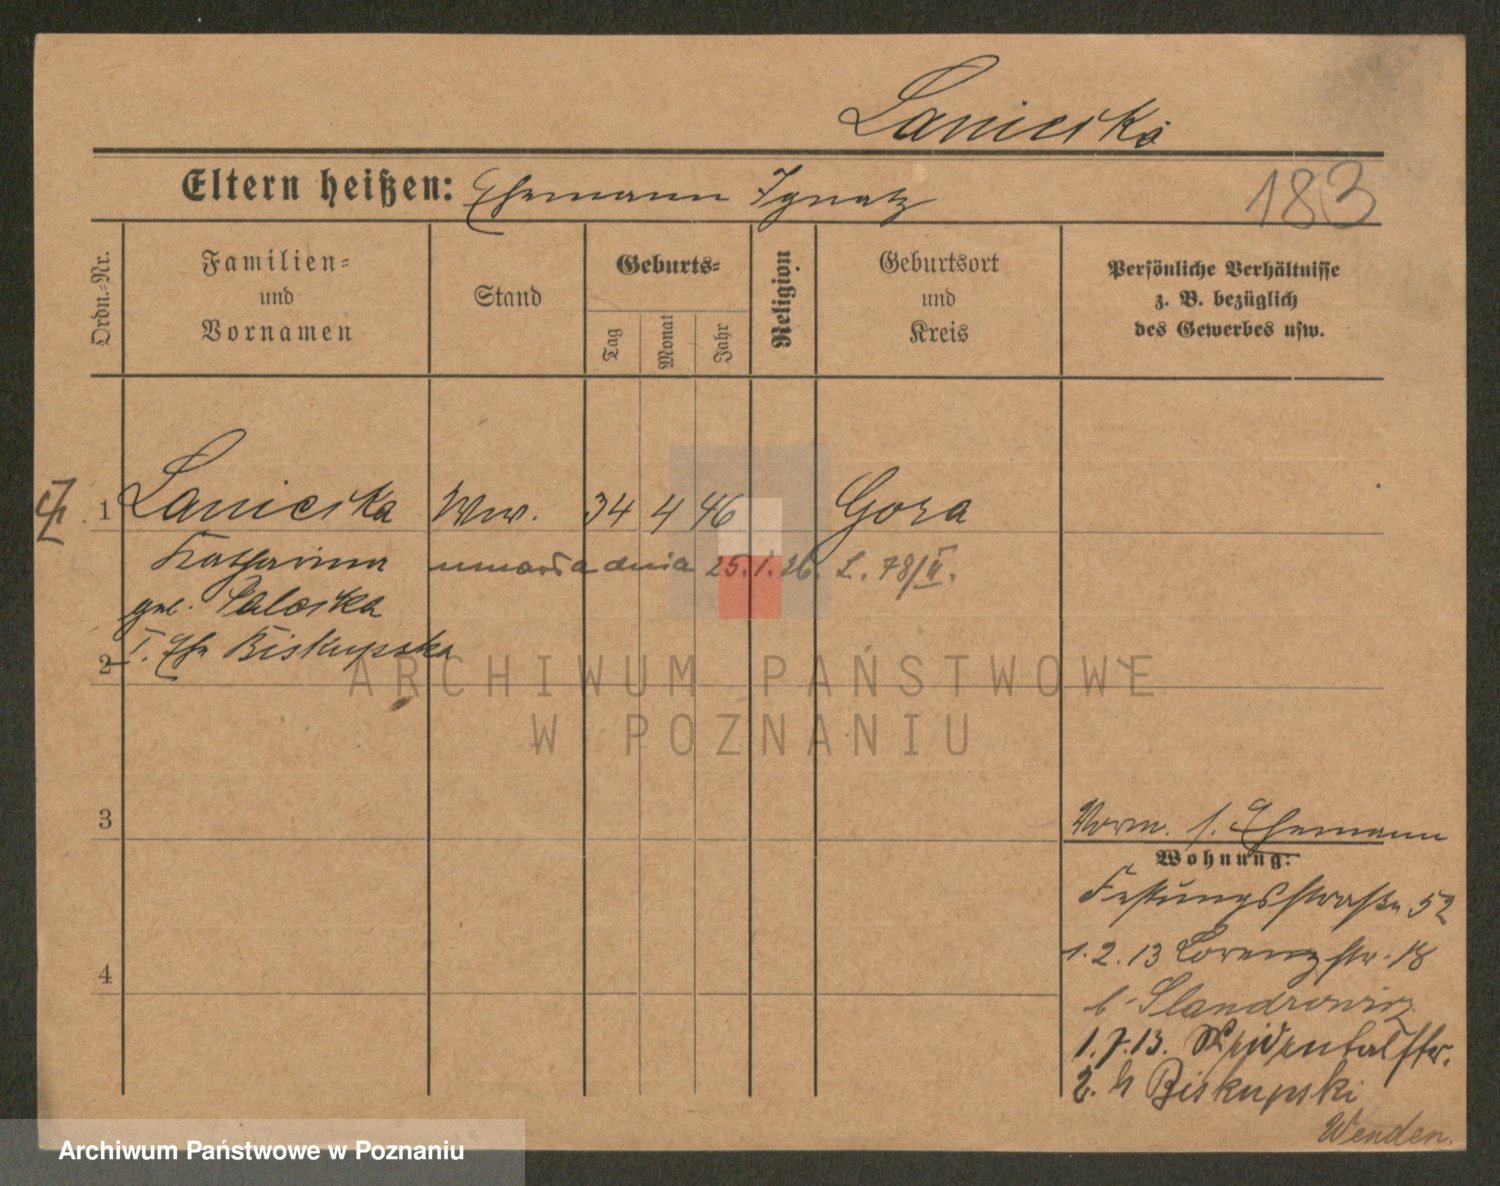 Laniecka
Eltern heißen: Ehemann Ignatz
183
Ordn.-Nr.
Familien-
und
Vornamen
Stand
Geburts-
Tag
Monat
Jahr
Religion
Geburtsort
und
Kreis
Persönliche Verhältnisse
z. B. bezüglich
des Gewerbes usw.
1 Laniecka Ww. 4 46 Gora
Katharina umarła dnia 25.1.26. L. 78/II.
geb.
2 I. Ehe Biskupska
ARCHIWUM PAŃSTWOWE
W POZNANIU
3
4
Vorm. s. Ehemann
Wohnung:
Festungsstraße 52
1.2.13 Lorenzstr. 18
b.
1.7.13.
2. b Biskupski
Wenden.
Archiwum Państwowe w Poznaniu